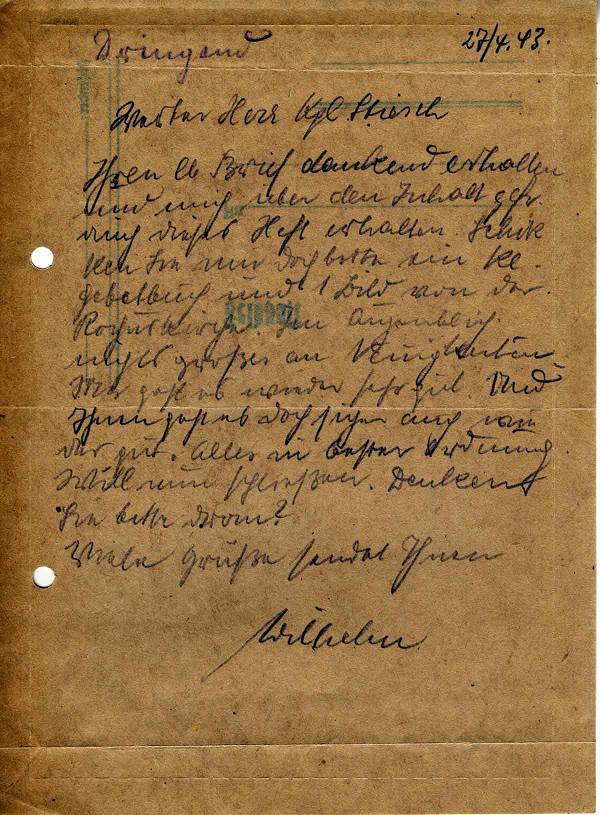 Dringend
27/4.43.
Werter Herr Kpl
Ihren lb Brief dankend erhalten
und mich über den Inhalt gefr.
auch dieses Heft erhalten. Schik
ken Sie mir doch bitte ein kl.
gebetbuch und 1 Bild von der
Rochuskirche. Im Augenblick
nichts großes an Neuigkeiten
Mir geht es wieder sehr gut. Und
Ihnen geht es doch sicher auch wie
der gut. Alles in bester Ordnung.
Will nun schließen. Denken
Sie bitte dran?
Viele Grüße sendet Ihnen
Wilhelm.